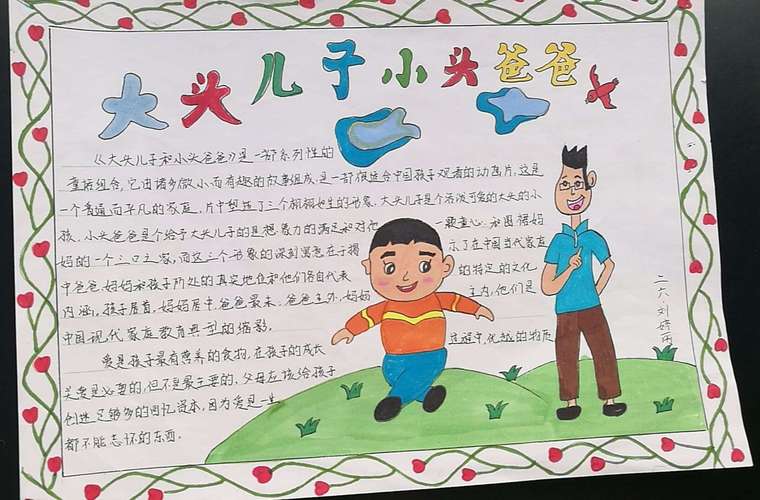 大头儿子小头爸爸
《大头儿子和小头爸爸》是一部系列性的
童话组合,它由诸多微小而有趣的故事组成,是一部很适合中国孩子观看的动画片,这是
一个普通而平凡的家庭,片中塑造了三个栩栩如生的形象。大头儿子是个活泼可爱的大头的小
孩,小头爸爸是个给予大头儿子的是想象力的满足和对他一颗童心,和围裙妈
妈的一个三口之家,而这三个形象的深刻寓意在于揭示了在中国当代家庭
中爸爸妈妈和孩子所处的真实地位和他们各自代表的特定的文化
内涵,孩子居首,妈妈居中,爸爸最末。爸爸主外,妈妈主内,他们是
中国现代家庭教育典型的缩影。
爱是孩子最有营养的食物,在孩子的成长过程中,优越的物质
关爱是必要的,但不是最主要的,父母应该给孩子
创造足够多的回忆资本,因为爱是一生
都不能忘怀的东西。
二六.刘婷雨